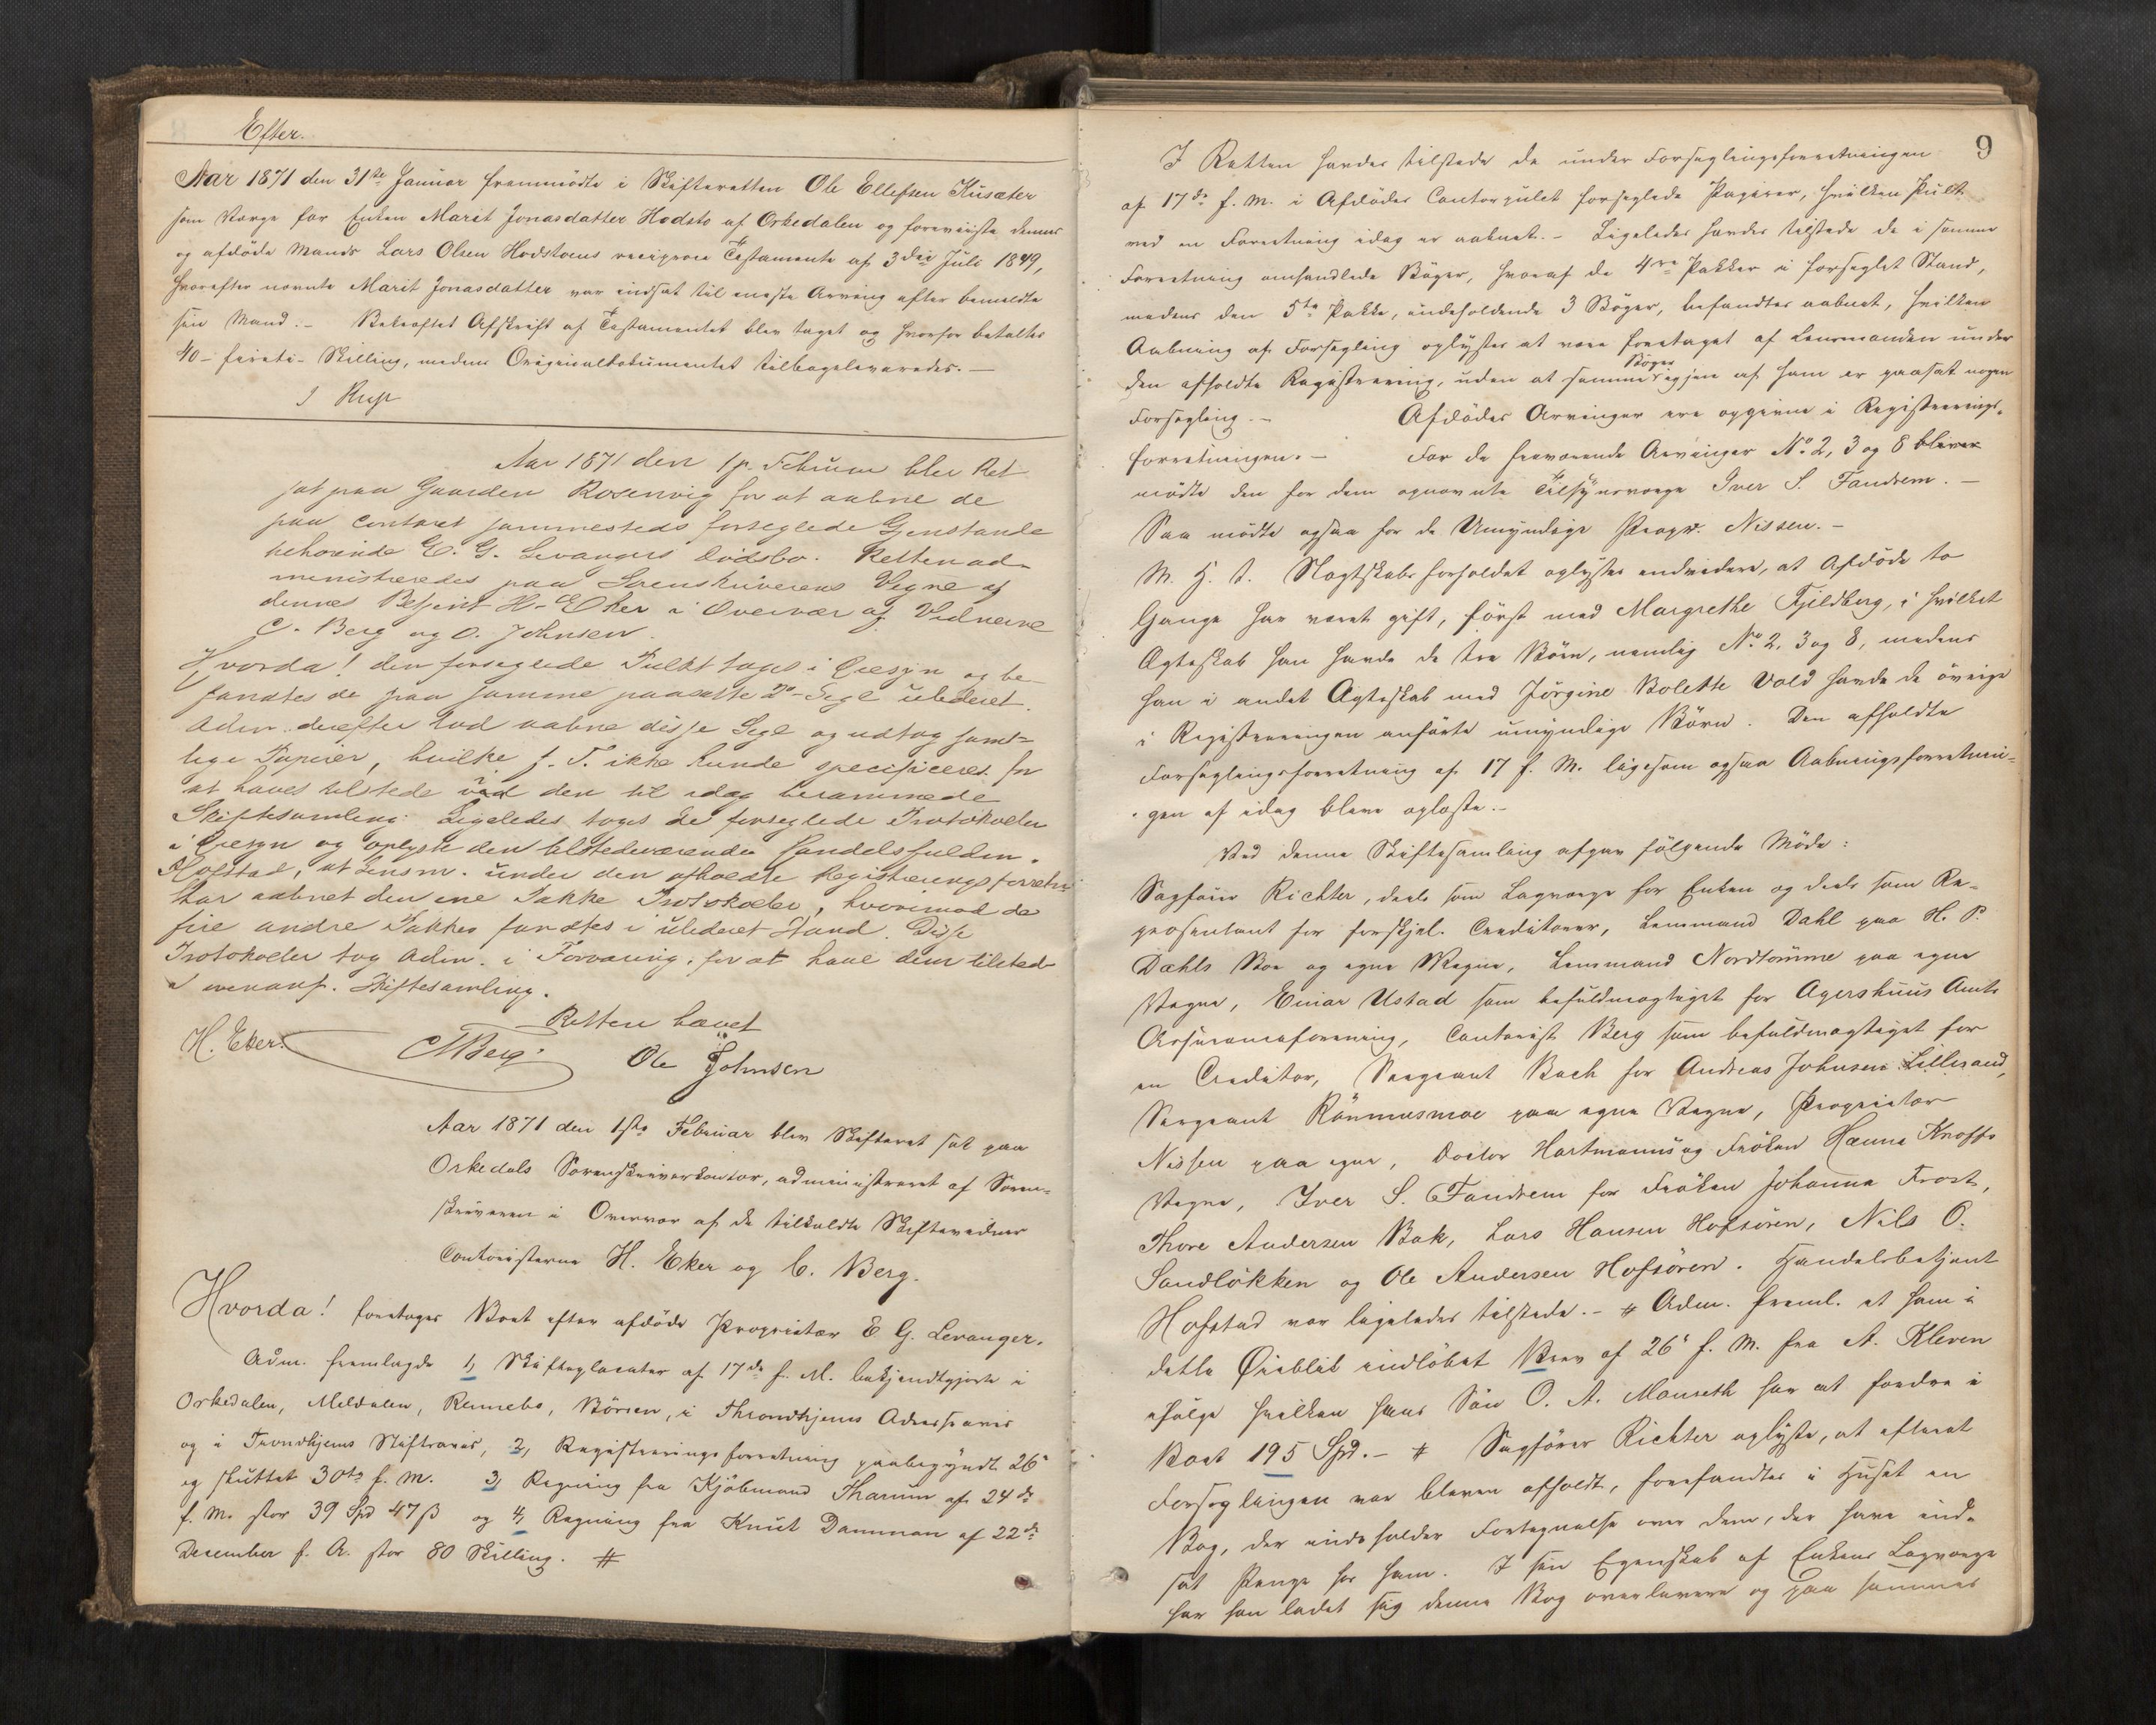 Efter.
Aar 1871 den 31te Januar fremmødte i Skifteretten Ole Ellefsen Kusæter
som Værge for Enken Marit Jonasdatter Hodsto af Orkedalen og foreviiste dennes
og afdøde Mands Lars Olsen Hodstoens reciproce Testamente af 3die Juli 1849,
hvorefter nævnte Marit Jonasdatter var indsat til eneste Arving efter bemeldte
sin Mand. – Bekræftet Afskrift af Testamentet blev taget og hvorfor betaltes
40 – fireti – Skilling, medens Originaldokumentet tilbageleveredes. –
Aar 1871 den 1ste Februar blev Ret
sat paa Gaarden Rosenvig for at aabne de
paa Contoret sammesteds forseglede Gjenstande
tilhørende E. G. Levangers Dødsbo. Retten ad-
ministreredes paa Sorenskriverens Vegne af
dennes Betjent H. Eker i Overvær af Vidnerne
C. Berg og O. Johnsen.
Hvorda! den forseglede Pult toges i Øiesyn og be-
fandtes de paa samme paasatte 2de Segl ubskadiget.
Adm. derefter lod aabne disse Segl og udtog samt-
lige Papirer, hvilke f. T. ikke kunde specificeres for
at haves tilstede ved den til idag berammede
Skiftesamling. Ligeledes toges de forseglede Protokoller
i Øiesyn og oplyste den tilstedeværende Handelsfuldm.
Hofstad, at Lensm. under den afholdte Registreringsforretn.
har aabnet den ene Pakke Protokoller, hvorimod de
fire andre Pakker fandtes i ubeskadiget Stand. Disse
Protokoller tog Adm. i Forvaring for at have dem tilstede
i ovenanf. Skiftesamling.
Retten hævet
H. Eker. CMBerg. Ole Johnsen
Aar 1871 den 1ste Februar blev Skifteret sat paa
Orkedals Sorenskriverkontor, administreret af Soren-
skriveren i Overvær af de tilkaldte Skiftevidner
Contoristerne H. Eker og C. Berg.
Hvorda! foretoges Boet efter afdøde Proprietær E G. Levanger.
Adm. fremlagde 1, Skifteplacater af 17de f. M. bekjendtgjorte i
Orkedalen, Meldalen, Rennebo, Børsen, i Throndhjems Adresseavis
og i Trondhjems Stiftsavis, 2, Registreringsforretning paabegyndt 26de
og sluttet 30te f. M. 3, Regning fra Kjøbmand Tharum af 24de
f. M. stor 39 Spd 47 ß og 4, Regning fra Knut Damman af 22de
December f. A. stor 80 Skilling. #
9
I Retten havdes tilstede de under Forseglingsforretningen
af 17de f. M. i Afdødes Contorpult forseglede Papirer, hvilken Pult
ved en Forretning idag er aabnet. – Ligeledes havdes tilstede de i samme
Forretning omhandlede Bøger, hvoraf de 4re Pakker i forseglet Stand,
medens den 5te Pakke, indeholdende 3 Bøger, befandtes aabnet, hvilken
Aabning af Forsegling oplystes at være foretaget af Lensmanden under
den afholdte Registrering, uden at samme Bøger igjen af ham er paasat nogen
Forsegling. – Afdødes Arvinger ere opgivne i Registrerings-
forretningen. – For de fraværende Arvinger No 2, 3 og 8 bleven
mødte den for dem opnævnte Tilsynsværge Iver S. Fandrem. –
Saa mødte ogsaa for de Umyndige Propr. Nissen. –
M. H. t. Slægtskabsforholdet oplystes endvidere, at Afdøde to
Gange har været gift, først med Margrethe Fjeldberg, i hvilket
Ægteskab han havde de tre Børn, nemlig No 2, 3 og 8, medens
han i andet Ægteskab med Jørgine Bolette Vold havde de øvrige
i Registreringen anførte umyndige Børn. Den afholdte
Forseglingsforretning af 17 f. M. ligesom ogsaa Aabningsforretnin-
gen af idag bleve oplæste. –
Ved denne Skiftesamling afgav følgende Møde:
Sagfører Richter, deels som Lagværge for Enken og deels som Re-
præsentant for forskjel. Creditorer, Lensmand Dahl paa H. P.
Dæhls Boe og egne Vegne, Lensmand Nordtømme paa egne
Vegne, Einar Ustad som befuldmægtiget for Agershuus Amts
Assuranceforening, Contorist Berg som befuldmægtiget for
en Creditor, Sergeant Bach for Andreas Johnsen Lillesand,
Sergeant Rønnusmoe paa egne Vegne, Proprietær
Nissen paa egne, Doctor Hartmanns og Frøken Hanna Knoffs
Vegne, Iver S. Fandrem for Frøken Johanna Frost,
Thore Andersen Bak, Lars Hansen Hofsøren, Nils O.
Sandløkken og Ole Andersen Hofsøren. Handelsbetjent
Hofstad var ligeledes tilstede. – # Adm. freml. et ham i
dette Øieblik indløbet Brev af 26de f. M. fra A. Kleven
ifølge hvilken hans Søn O. A. Mauseth har at fordre i
Boet 195 Spd. – # Sagfører Richter oplyste, at efterat
Forseglingen var bleven afholdt, forefandtes i Huset en
Bog, der indeholder Fortegnelse over dem, der have ind-
sat Penge hos ham. I sin Egenskab af Enkens Lagværge
har han ladet sig denne Bog overlevere og paa sammes